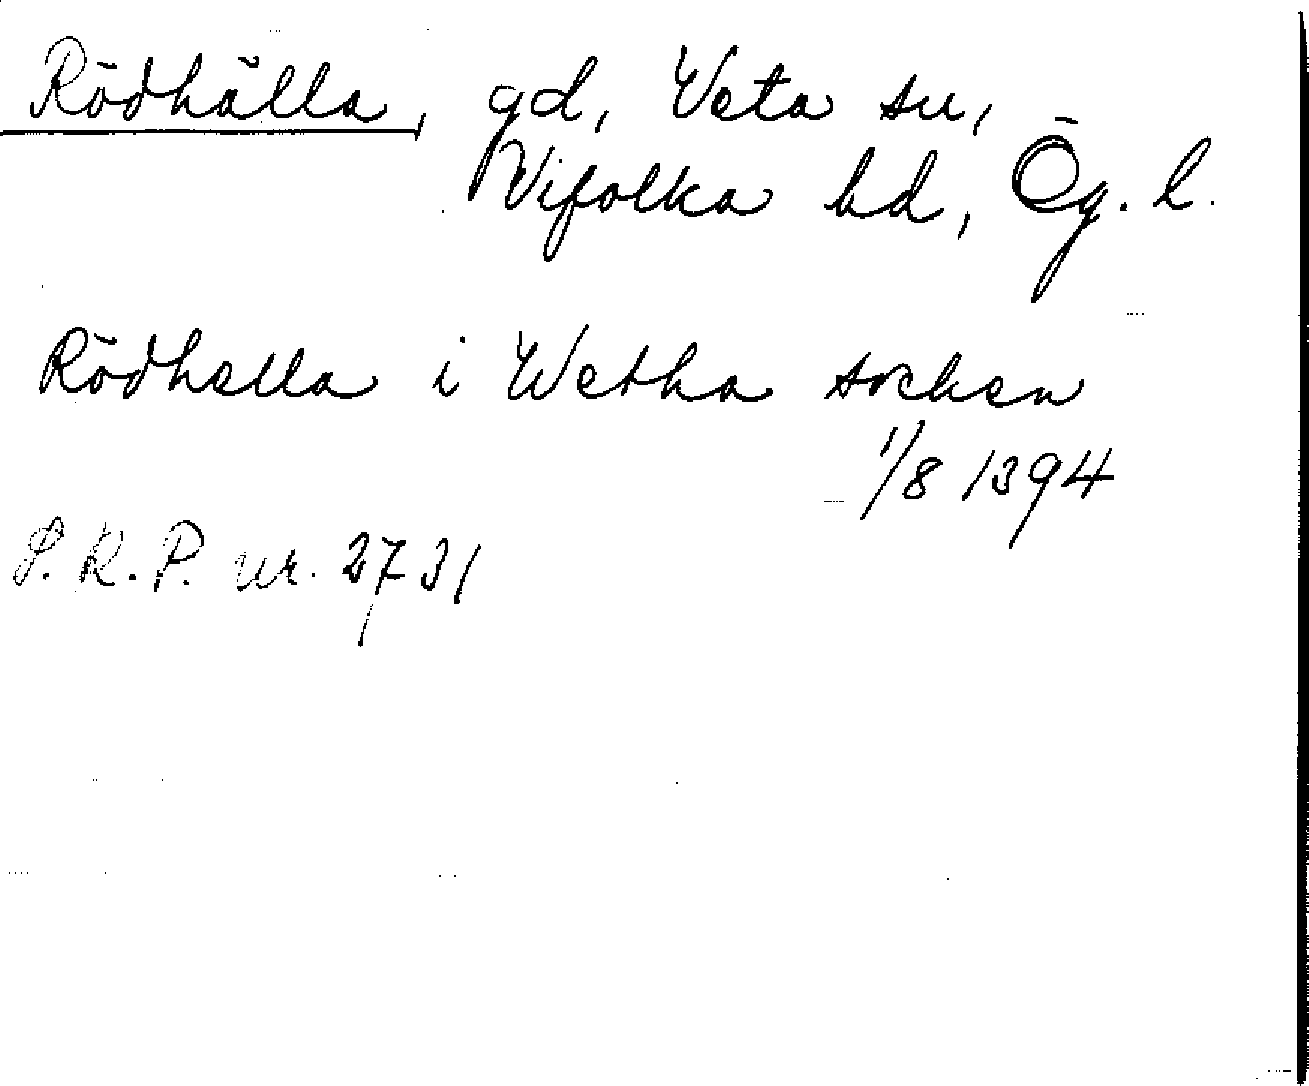 Rödhälla, gd, Veta sn,
Vifolka hd, Ög. l.
Rödhella i Wetha sochen
1/8 1394
S. R. P. nr. 2731